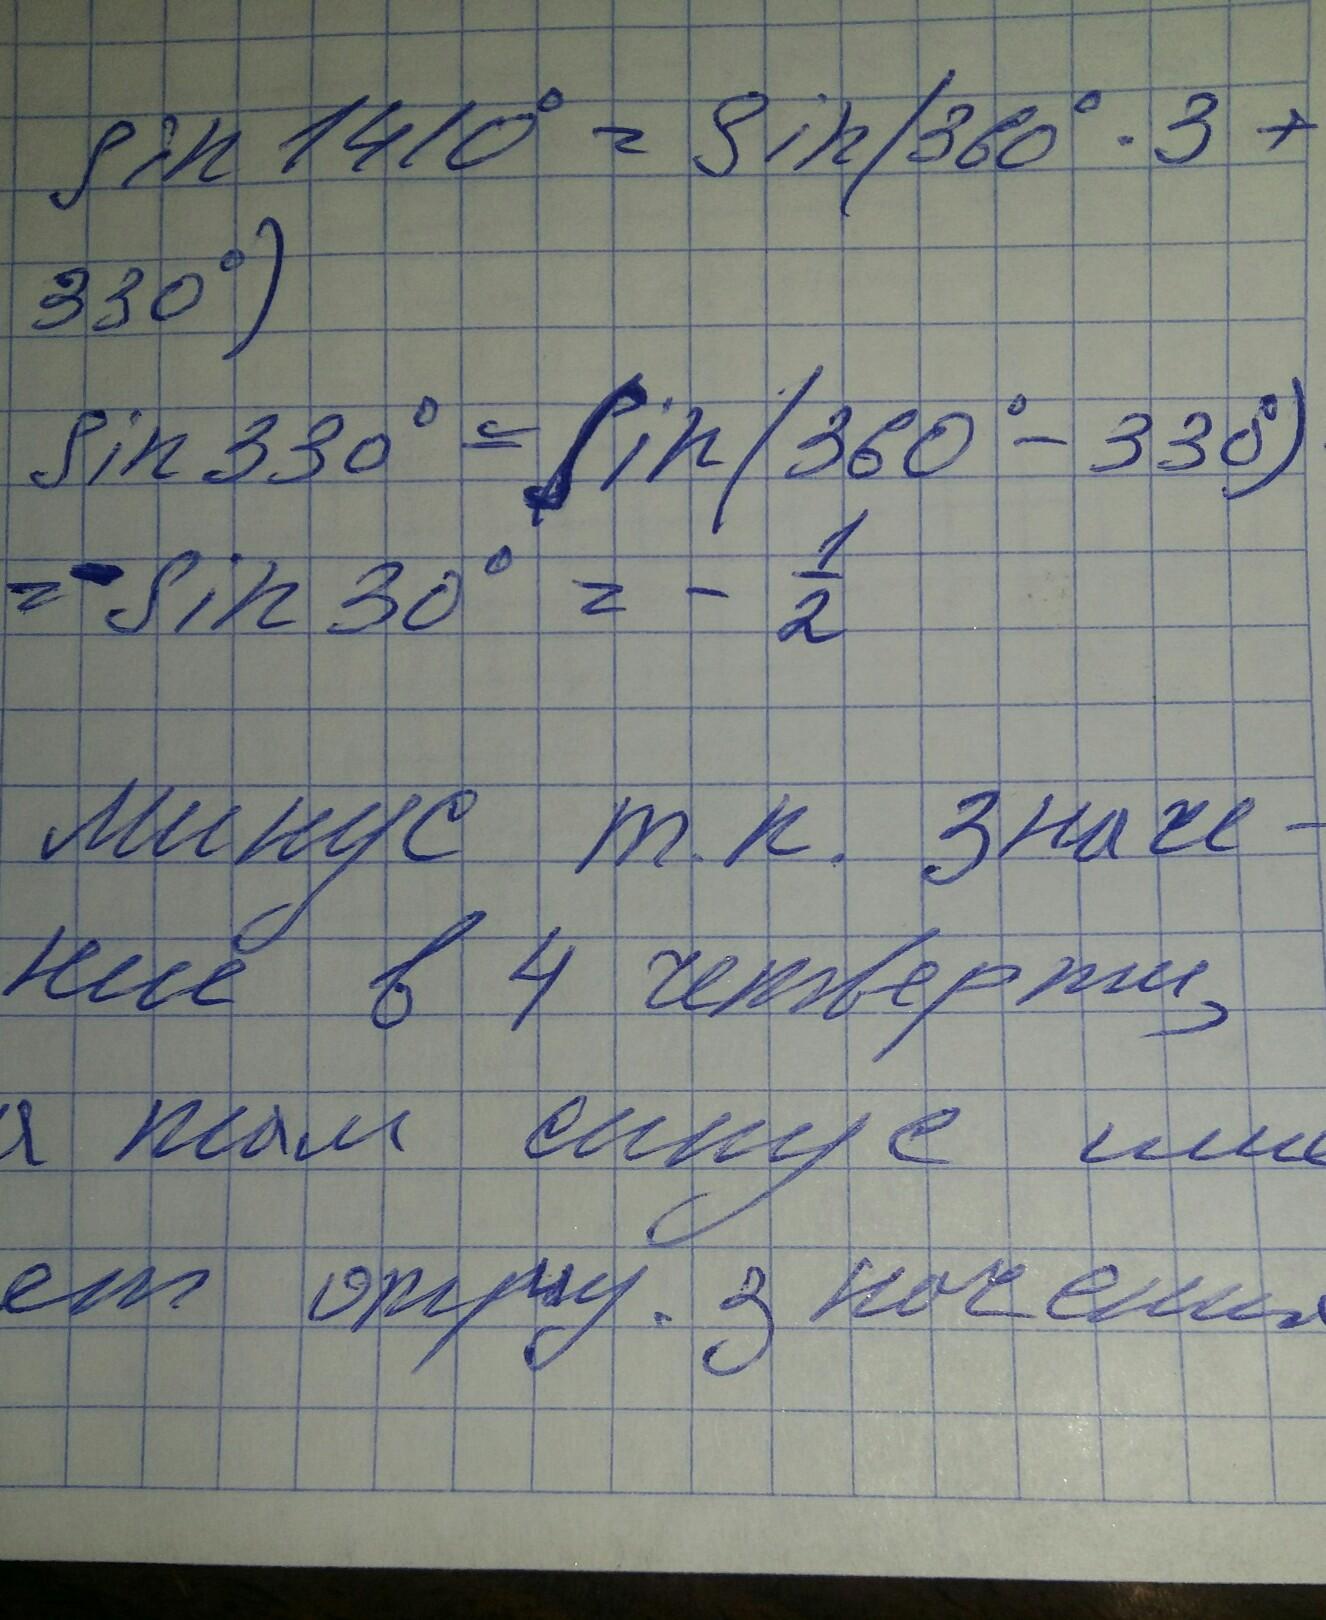 sin 1410° = sin(360° · 3 +
330°)
sin 330° = sin(360° - 330°)
= -sin 30° = - 1/2
минус т.к. значе-
ние в 4 четверти,
а там синус име
ет отриц. значения